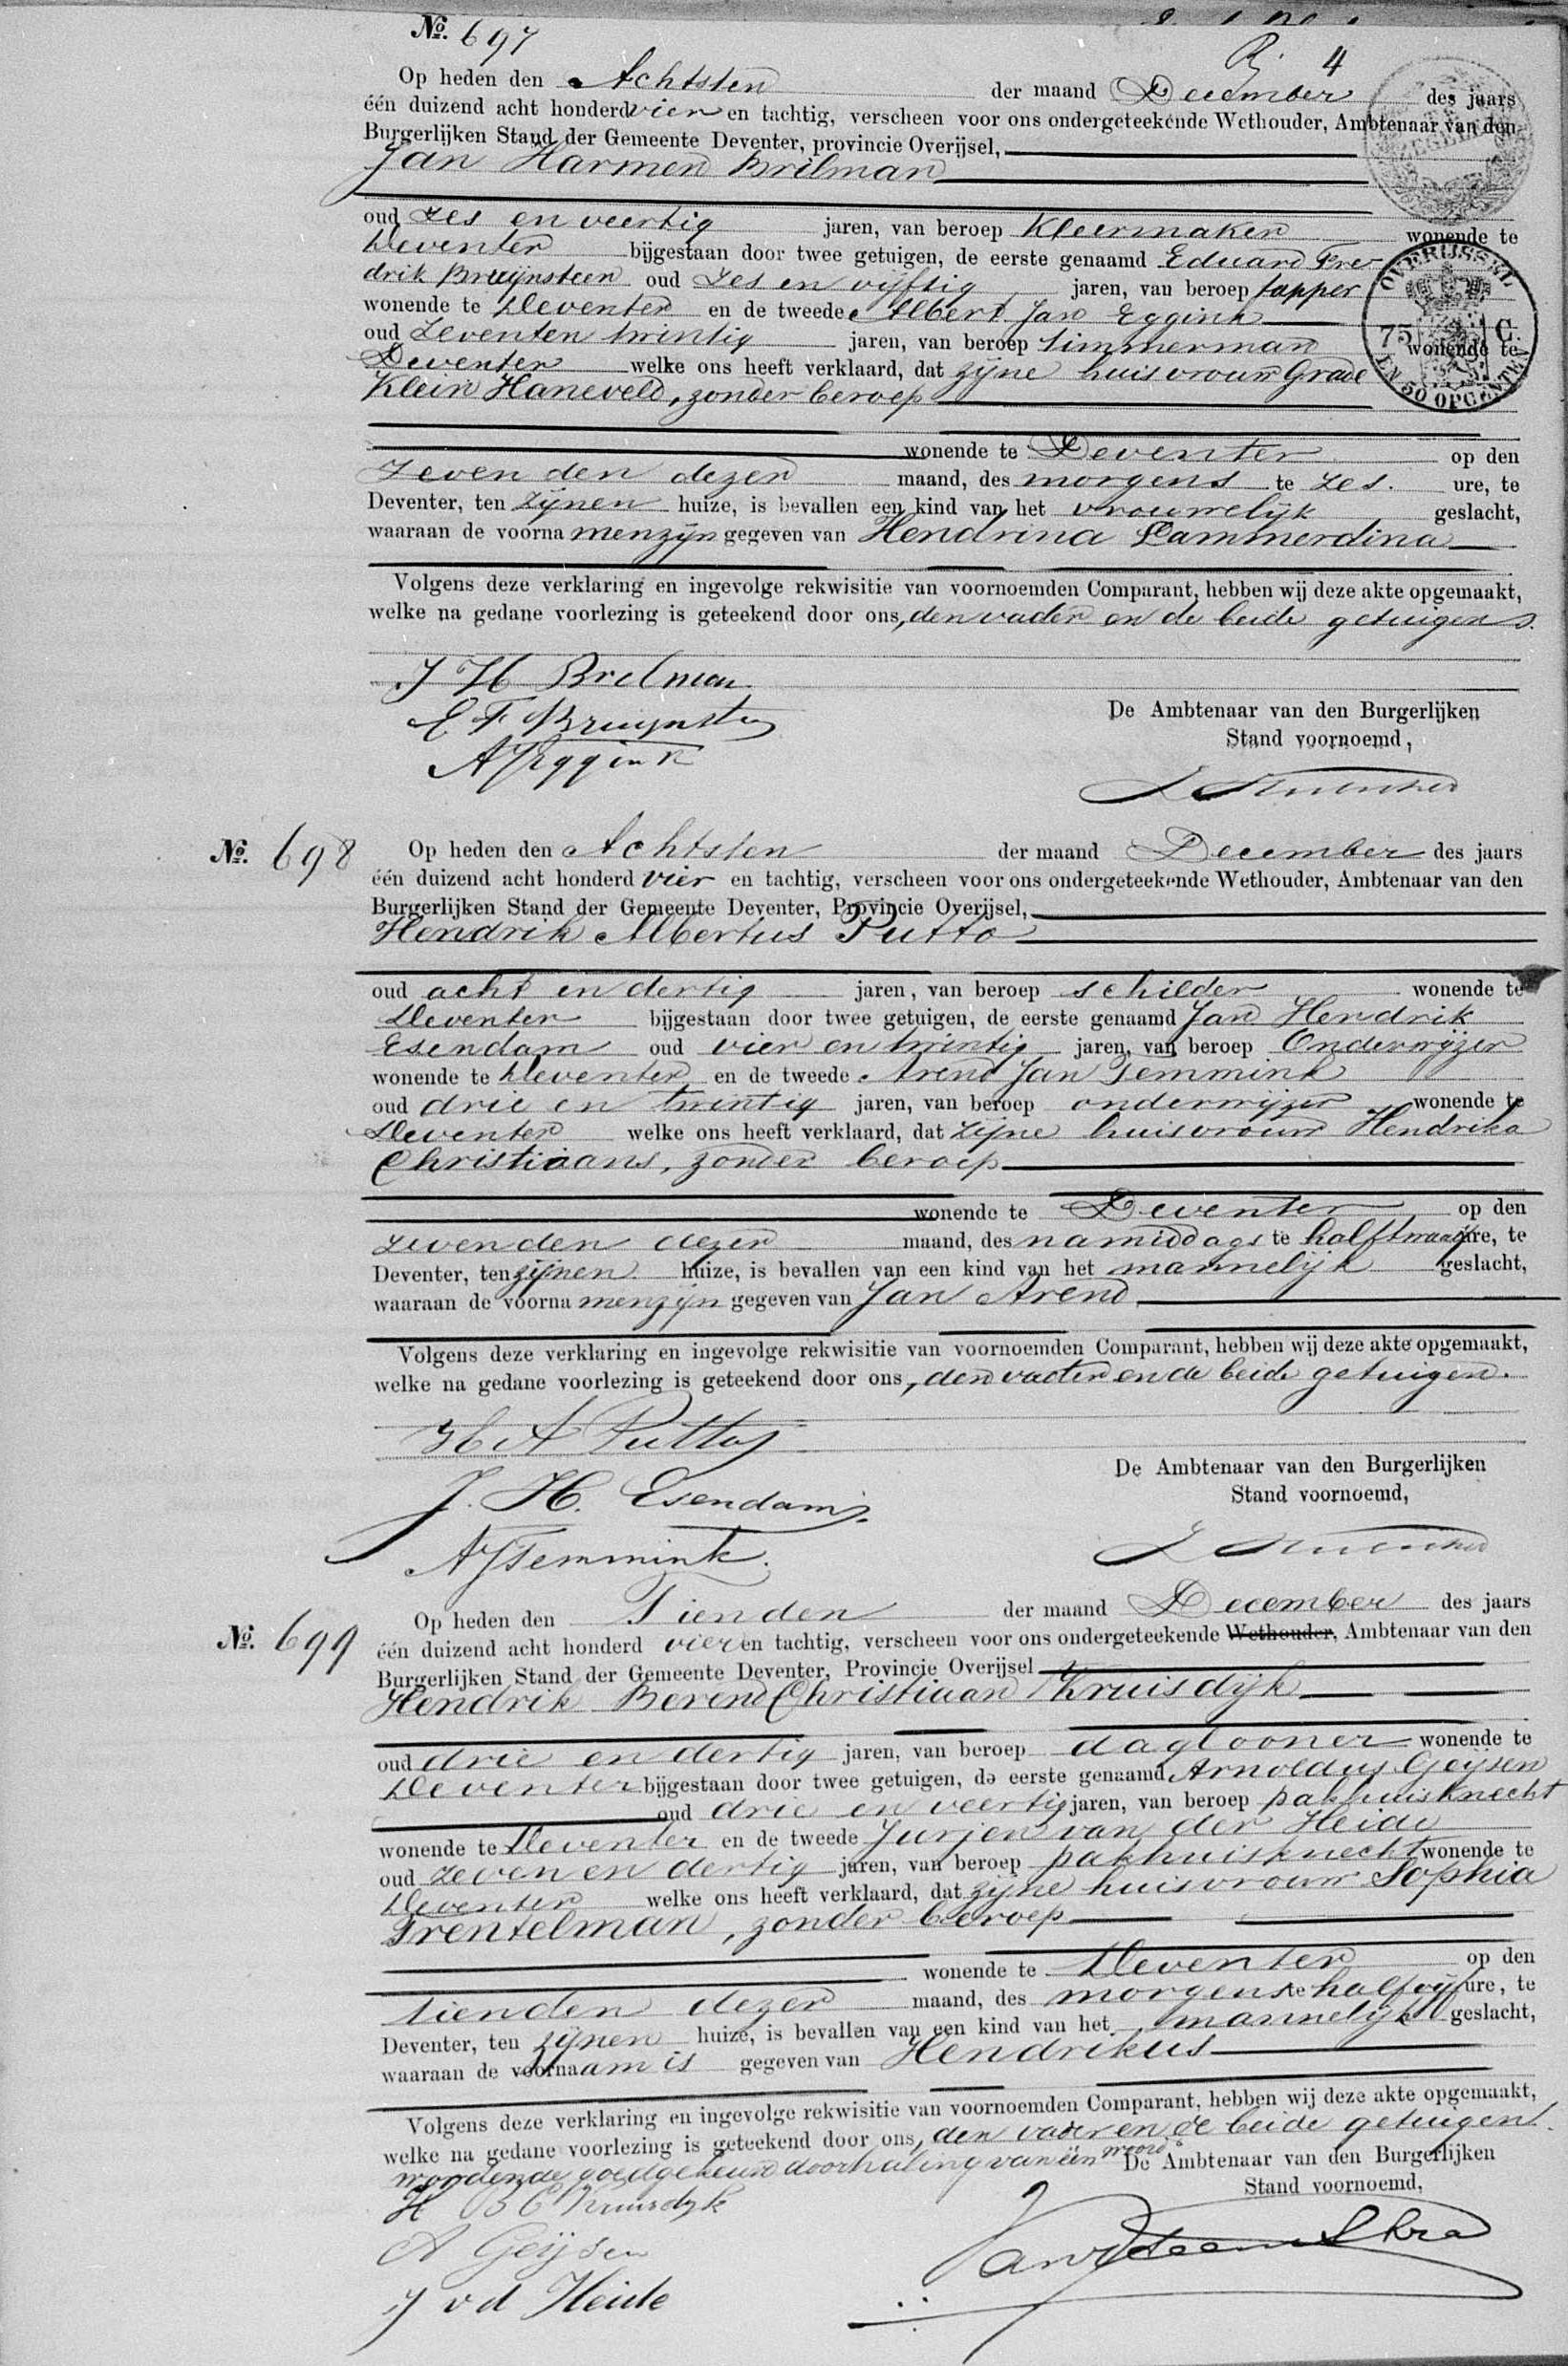 No. 697
R. 4
Op heden den Achtsten der maand December des jaars
één duizend acht honderd vier en tachtig, verscheen voor ons ondergeteekende Wethouder, Ambtenaar van den
Burgerlijken Stand der Gemeente Deventer, provincie Overijsel,
Jan Harmen Brilman
oud zes en veertig jaren, van beroep Kleermaker wonende te
Deventer bijgestaan door twee getuigen, de eerste genaamd Eduard Fre-
drik Bruijnsteen oud zes en vijftig jaren, van beroep tapper
wonende te Deventer en de tweede Albert Jan Eggink
oud zeventen twintig jaren, van beroep timmerman wonende te
Deventer welke ons heeft verklaard, dat zijne huisvrouw Grade
Klein Haneveld, zonder beroep
OVERIJSSEL
75 C.
EN 50 OPCENTEN
wonende te Deventer op den
zevenden dezer maand, des morgens te zes. ure, te
Deventer, ten zijnen huize, is bevallen een kind van het vrouwelijk geslacht,
waaraan de voornamen zijn gegeven van Hendrina Lammerdina
Volgens deze verklaring en ingevolge rekwisitie van voornoemden Comparant, hebben wij deze akte opgemaakt,
welke na gedane voorlezing is geteekend door ons, den vader en de beide getuigen.
J H Brilman
E F Bruynsteen
A J Eggink
De Ambtenaar van den Burgerlijken
Stand voornoemd,
No. 698
Op heden den Achtsten der maand December des jaars
één duizend acht honderd vier en tachtig, verscheen voor ons ondergeteekende Wethouder, Ambtenaar van den
Burgerlijken Stand der Gemeente Deventer, Provincie Overijsel,
Hendrik Albertus Putto
oud acht en dertig jaren, van beroep schilder wonende te
Deventer bijgestaan door twee getuigen, de eerste genaamd Jan Hendrik
Esendam oud vier en twintig jaren, van beroep Onderwijzer
wonende te Deventer en de tweede Arend Jan Temmink
oud drie en twintig jaren, van beroep onderwijzer wonende te
Deventer welke ons heeft verklaard, dat zijne huisvrouw Hendrika
Christiaans, zonder beroep
wonende te Deventer op den
zevenden dezer maand, des namiddags te half twaalf ure, te
Deventer, ten zijnen huize, is bevallen van een kind van het mannelijk geslacht,
waaraan de voornamen zijn gegeven van Jan Arend
Volgens deze verklaring en ingevolge rekwisitie van voornoemden Comparant, hebben wij deze akte opgemaakt,
welke na gedane voorlezing is geteekend door ons, den vader en de beide getuigen.
H A Putto
J. H. Esendam
A J Temmink
De Ambtenaar van den Burgerlijken
Stand voornoemd,
No. 699
Op heden den Tienden der maand December des jaars
één duizend acht honderd vier en tachtig, verscheen voor ons ondergeteekende Wethouder, Ambtenaar van den
Burgerlijken Stand der Gemeente Deventer, Provincie Overijsel
Hendrik Berend Christiaan Kruisdijk
oud drie en dertig jaren, van beroep daglooner wonende te
Deventer bijgestaan door twee getuigen, de eerste genaamd Arnoldus Geijsen
oud drie en veertig jaren, van beroep pakhuisknecht
wonende te Deventer en de tweede Jurjen van der Heide
oud zeven en dertig jaren, van beroep pakhuisknecht wonende te
Deventer welke ons heeft verklaard, dat zijne huisvrouw Sophia
Trentelman, zonder beroep
wonende te Deventer op den
tienden dezer maand, des morgens te half vijf ure, te
Deventer, ten zijnen huize, is bevallen van een kind van het mannelijk geslacht,
waaraan de voornaam is gegeven van Hendrikus
Volgens deze verklaring en ingevolge rekwisitie van voornoemden Comparant, hebben wij deze akte opgemaakt,
welke na gedane voorlezing is geteekend door ons, den vader en de beide getuigen.
wordende goedgekeurd doorhaling van één woord
De Ambtenaar van den Burgerlijken
Stand voornoemd,
H B C Kruisdyk
A Geijsen
J v d Heide